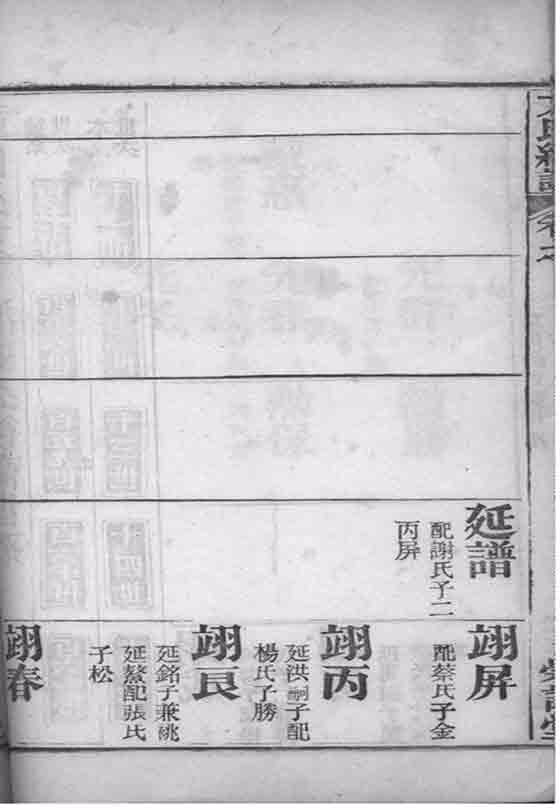 延譜
配謝氏子二
丙屏
翊屏
配蔡氏子金
翊丙
延洪嗣子配
楊氏子勝
翊良
延銘子兼祧
延鰲配張氏
子松
翊春